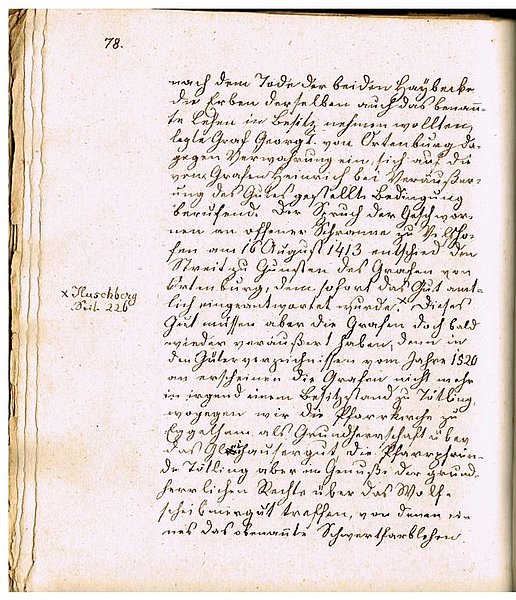 78.
nach dem Tode der beiden Haybecke
die Erben derselben auch das benann-
te Lehen in Besitz nehmen wollten,
legte Graf Georg I. von Ortenburg da-
gegen Verwahrung ein, sich auf die
von Grafen Heinrich bei Veräußer-
ung des Gutes gestellte Bedingung
berufend. Der Spruch der Geschwor-
nen an offener Schranne zu Vilsho-
fen am 16 August 1413 entschied den
Streit zu Gunsten des Grafen von
Ortenburg, dem sofort das Gut amt-
lich eingeantwortet wurde.x Dieses
x Huschberg
Seite 226
Gut müssen aber die Grafen doch bald
wieder veräußert haben, denn in
den Güterverzeichnissen vom Jahre 1520
an erscheinen die Grafen nicht mehr
in irgend einem Besitzstand zu Tötling
wogegen wir die Pfarrkirche zu
Egglham als Grundherrschaft über
das Gut, die Pfarrpfrün-
de Tötling aber im Genuße der grund-
herrlichen Rechte über das Wolf-
scheibmergut treffen, von denen ei-
nes das obenannte Schwertfarblehen